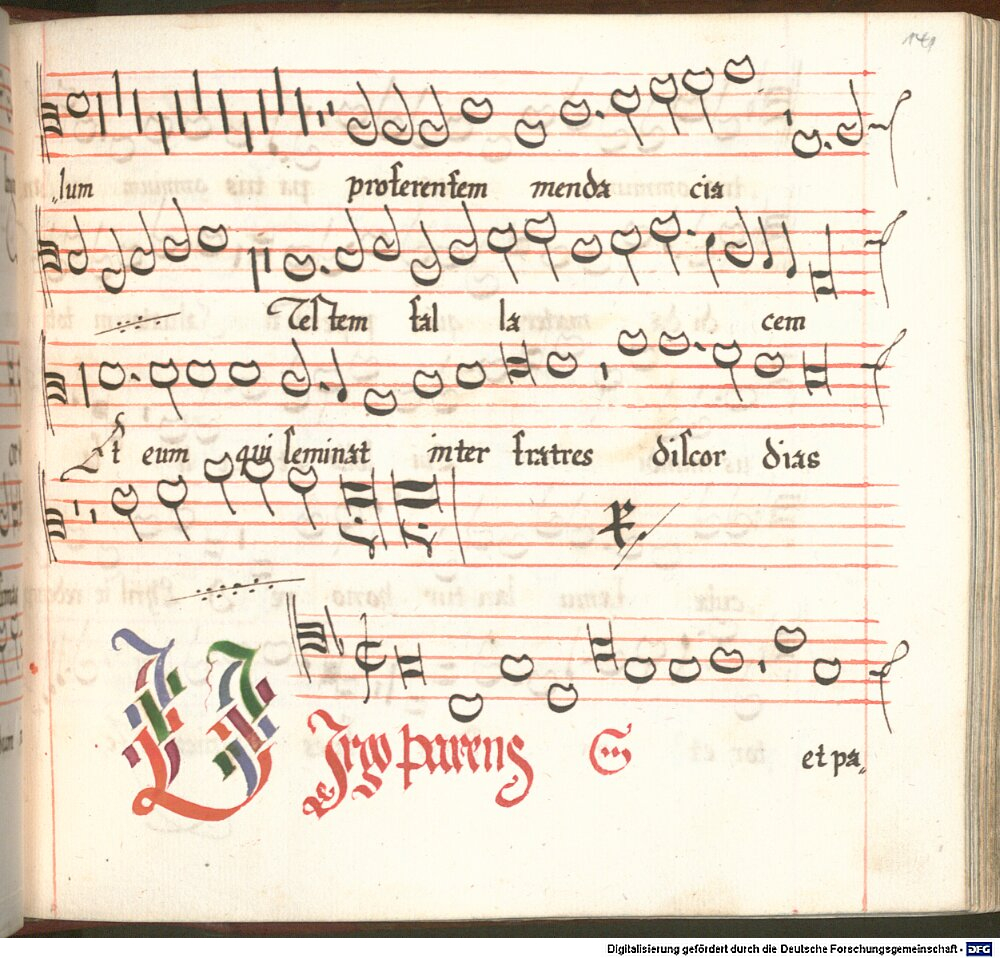 141
lum proferentem menda cia
Testem fal la cem
Et eum qui seminat inter fratres discor dias
Virgo parens et pa
Digitalisierung gefördert durch die Deutsche Forschungsgemeinschaft - DFG